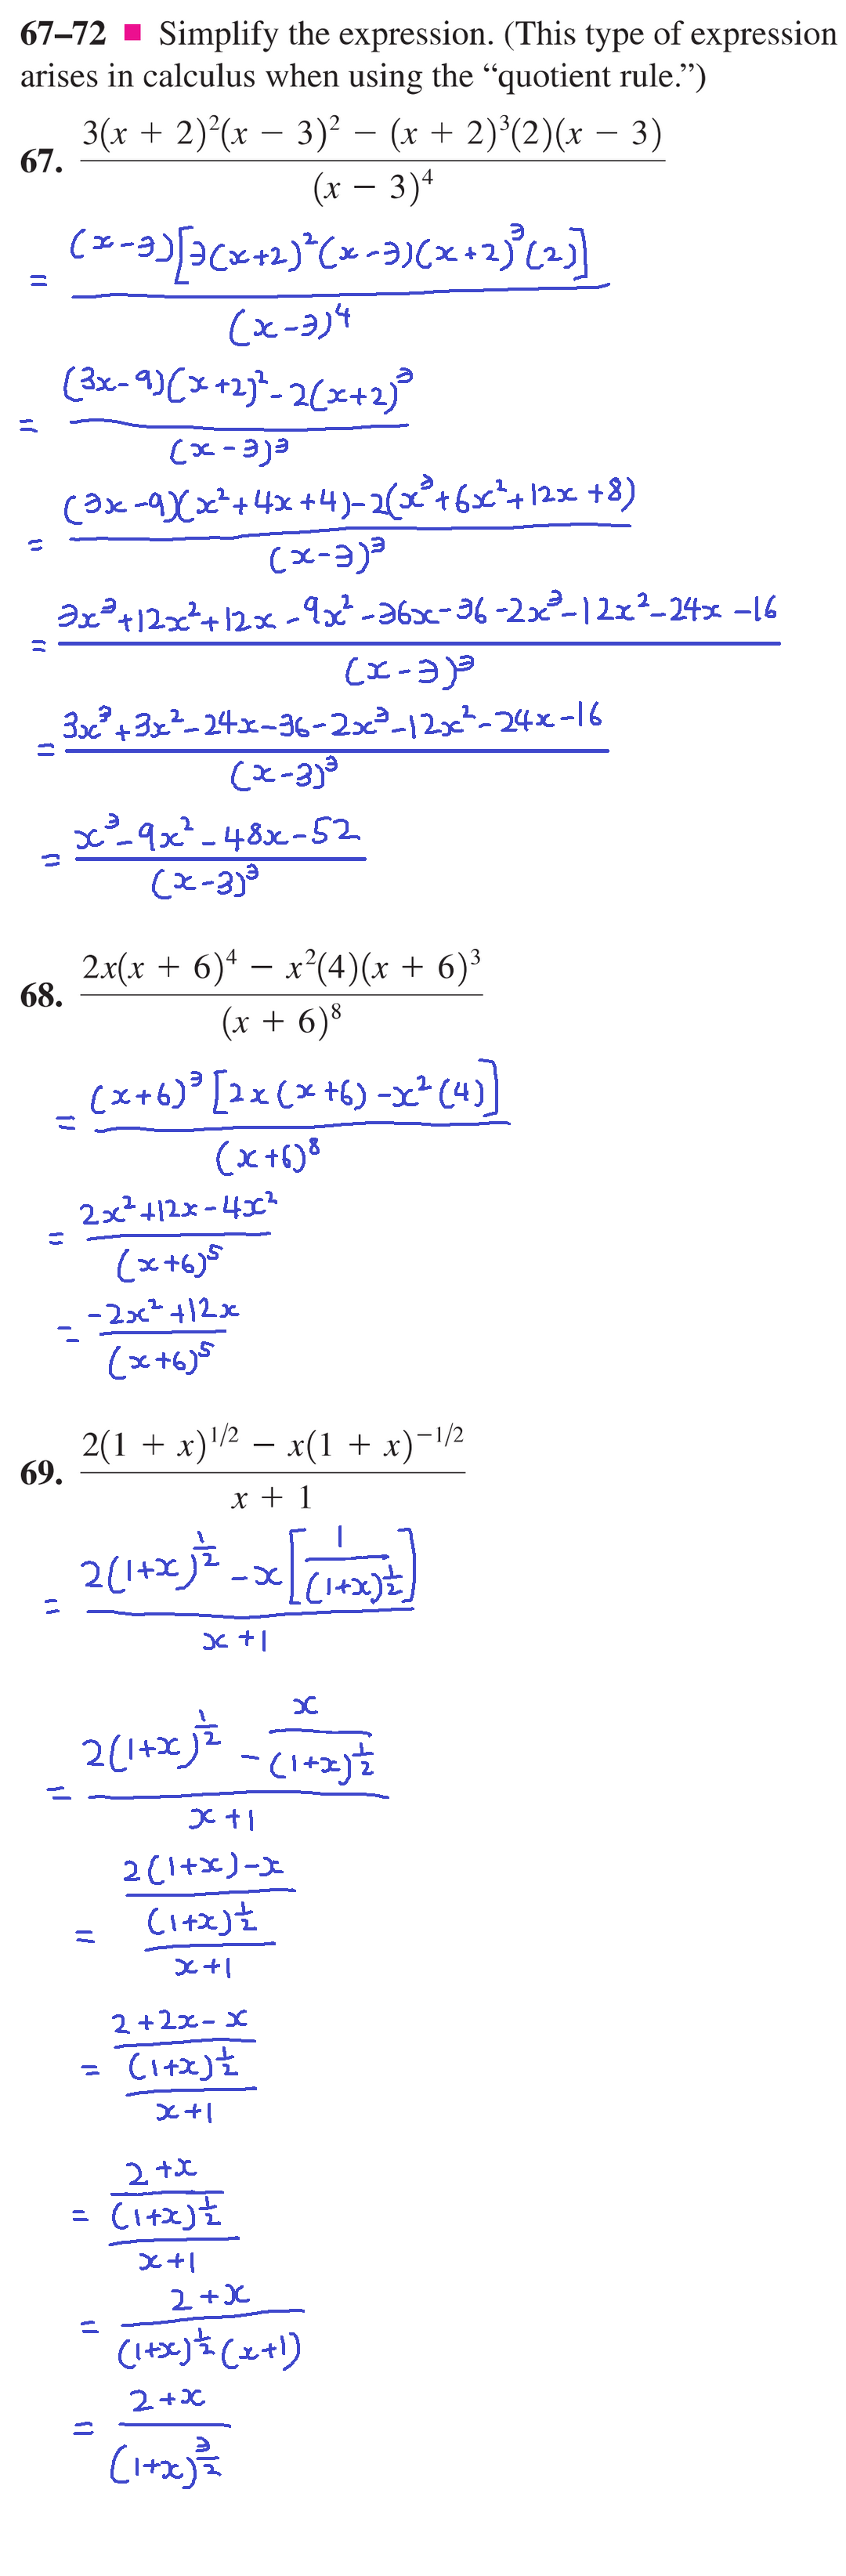 67–72 ■ Simplify the expression. (This type of expression
arises in calculus when using the “quotient rule.”)
67. \frac{3(x + 2)^2(x − 3)^2 − (x + 2)^3(2)(x − 3)}{(x − 3)^4}
= \frac{(x-3)[3(x+2)^2(x-3)(x+2)^3(2)]}{(x-3)^4}
= \frac{(3x-9)(x+2)^2-2(x+2)^3}{(x-3)^3}
= \frac{(3x-9)(x^2+4x+4)-2(x^3+6x^2+12x+8)}{(x-3)^3}
= \frac{3x^3+12x^2+12x-9x^2-36x-36-2x^3-12x^2-24x-16}{(x-3)^3}
= \frac{3x^3+3x^2-24x-36-2x^3-12x^2-24x-16}{(x-3)^3}
= \frac{x^3-9x^2-48x-52}{(x-3)^3}
68. \frac{2x(x + 6)^4 − x^2(4)(x + 6)^3}{(x + 6)^8}
= \frac{(x+6)^3[2x(x+6)-x^2(4)]}{(x+6)^8}
= \frac{2x^2+12x-4x^2}{(x+6)^5}
= \frac{-2x^2+12x}{(x+6)^5}
69. \frac{2(1 + x)^{1/2} − x(1 + x)^{−1/2}}{x + 1}
= \frac{2(1+x)^{\frac{1}{2}}-x[\frac{1}{(1+x)^{\frac{1}{2}}}]}{x+1}
= \frac{2(1+x)^{\frac{1}{2}}-\frac{x}{(1+x)^{\frac{1}{2}}}}{x+1}
= \frac{\frac{2(1+x)-x}{(1+x)^{\frac{1}{2}}}}{x+1}
= \frac{\frac{2+2x-x}{(1+x)^{\frac{1}{2}}}}{x+1}
= \frac{\frac{2+x}{(1+x)^{\frac{1}{2}}}}{x+1}
= \frac{2+x}{(1+x)^{\frac{1}{2}}(x+1)}
= \frac{2+x}{(1+x)^{\frac{3}{2}}}